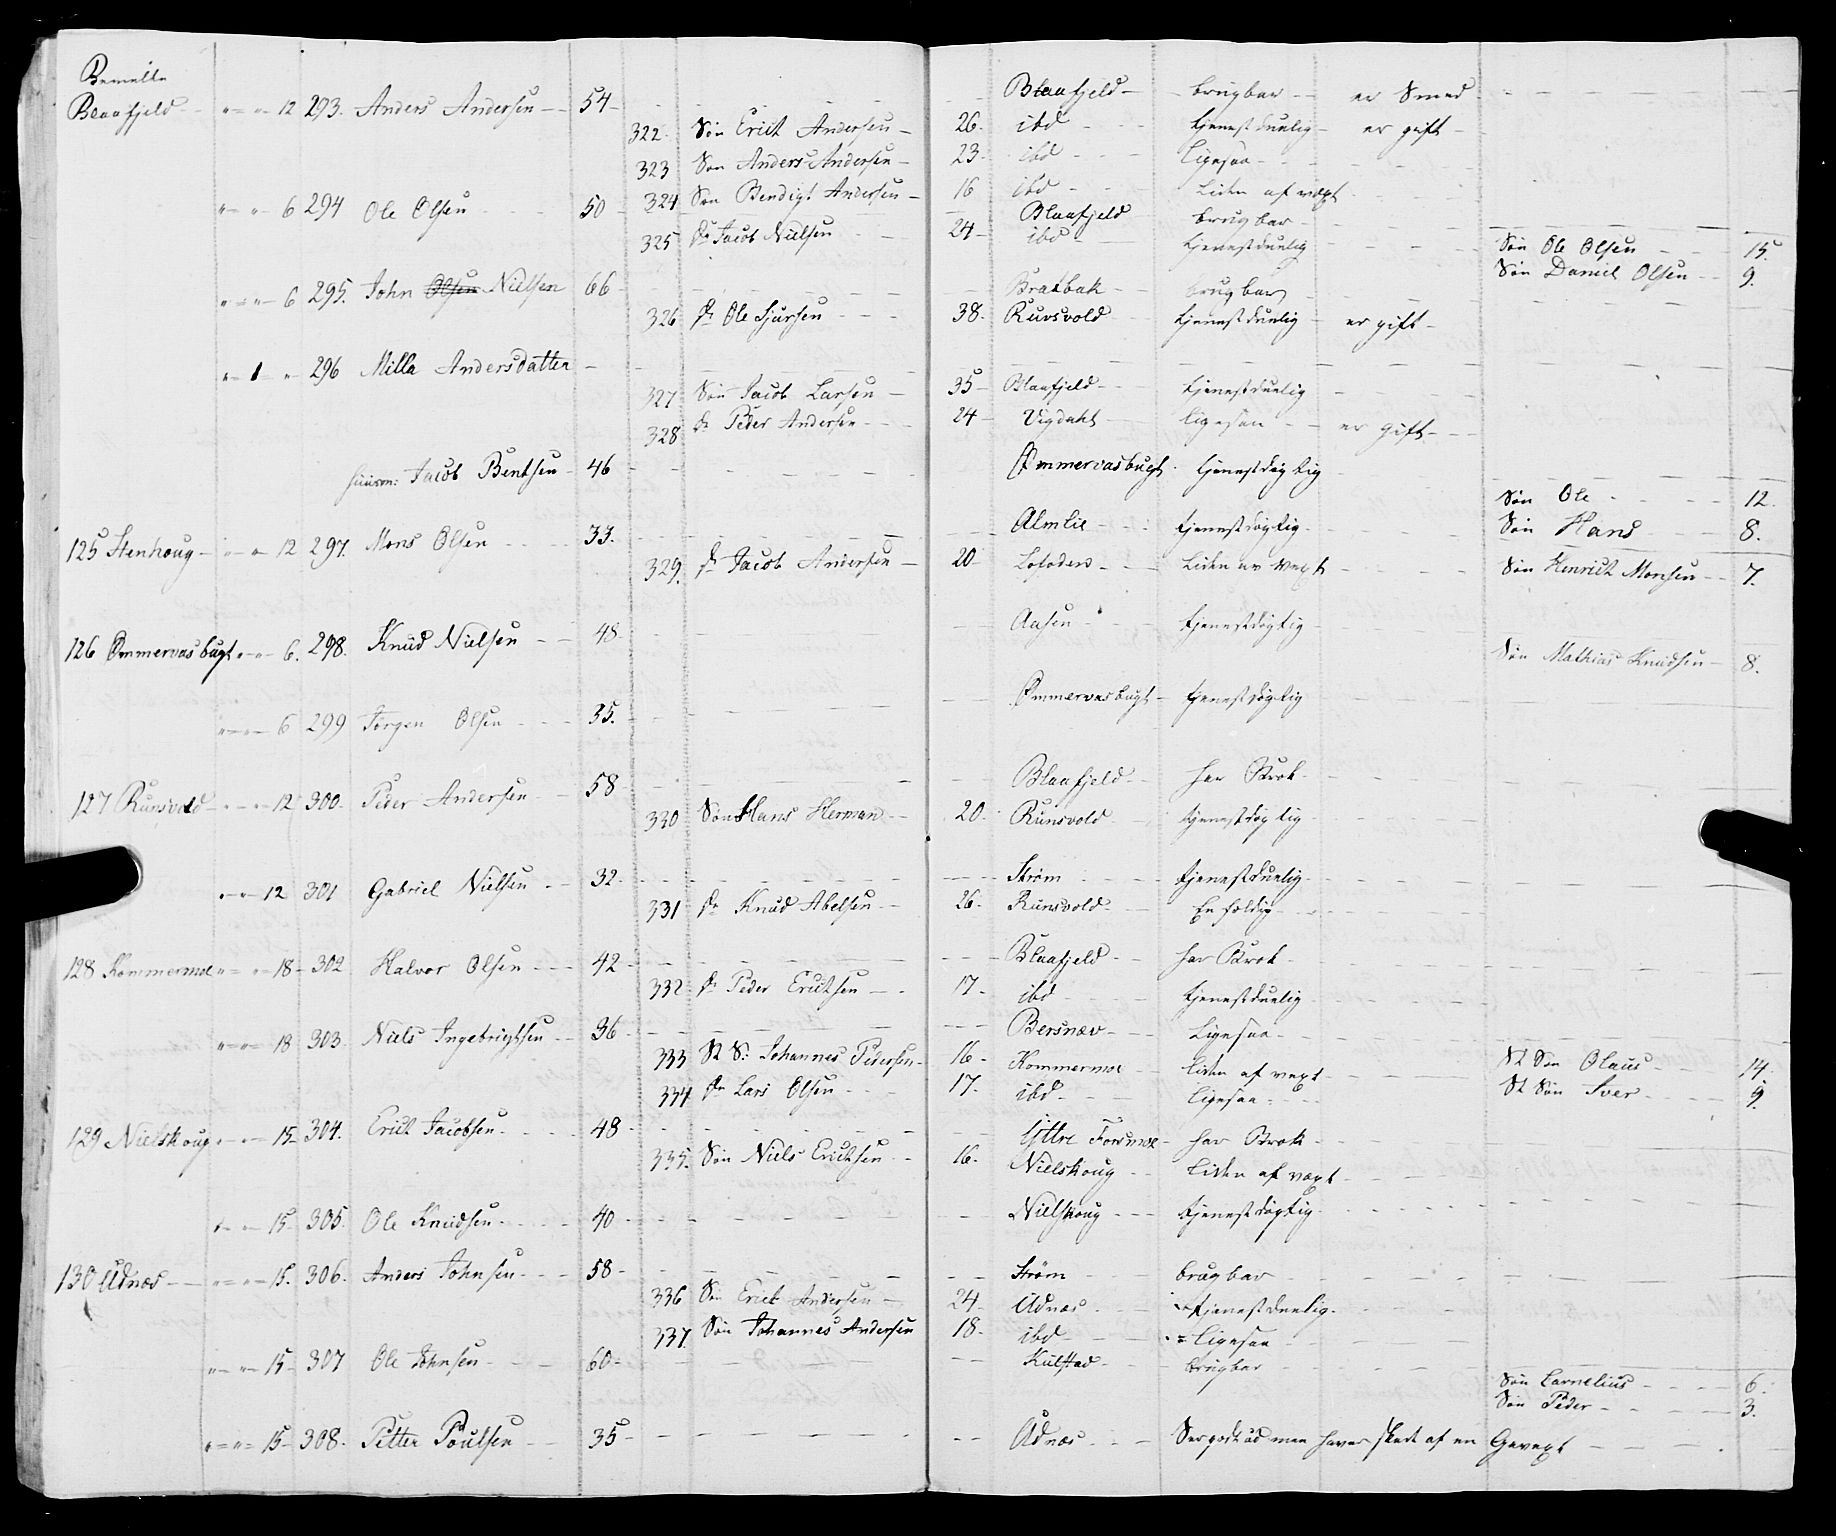 Bemelte
Blaafjeld - " = " = 12 293. Anders Andersen - 54 - Blaafjeld - brugbar - er Smed
322. Søn Erich Andersen - 26. ibd - tjenestduelig - er gift -
323 Søn Anders Andersen - 23. ibd - Ligesaa -
324 Søn Bendigt Andersen - 16 ibd - Liden af væxt
" = " - 6 294 Ole Olsen - 50 - Blaafjeld brugbar -
325 Dr Jacob Nielsen - 24 - ibd - tjenestduelig
Søn Ole Olsen - 15.
Søn Daniel Olsen - 9.
" = " - 6 295. John Olsen Nielsen 66 - Bratbak - brugbar
326 Dr Ole Sjursen - 38. Runsvold tjenestduelig - er gift -
" - 1 " 296 Milla Andersdatter -
327 Søn Jacob Larsen - 35 - Blaafjeld - tjenestduelig
328 Dr Peder Andersen - 24 - Vigdahl - Ligesaa - er gift -
Huusm: Jacob Bentsen - 46 - Ømmervasbugt. tjenestdøgtig
Søn Ole - 12.
Søn Hans - 8.
125 Stenhoug - " = " 12 297. Mons Olsen - 33. Almlie - tjenestdøgtig -
329. Dr Jacob Andersen - 20 - Lofoden - Liden av Vext - Søn Henrich Monsen - 7.
126 Ømmervasbugt " = " 6. 298. Knud Nielsen - 48 - Aasen - tjenestdøgtig
Søn Mathias Knudsen - 8.
" = " = 6 299 Jørgen Olsen - 35. Ømmervasbugt - tjenestdøgtig
127 Runsvold - " = " 12 300. Peder Andersen - 58 - Blaafjeld - har Brok -
330 Søn Hans Herman - 20. Runsvold - tjenestdøgtig
" = " = 12 301 Gabriel Nielsen - 32 - Strøm - tjenestduelig
331 Dr Knud Abelsen - 26 - Runsvold - Enfoldig -
128 Kommermoe " = " 18 - 302 Halvor Olsen - 42 - Blaafjeld - har Brok -
332 Dr Peder Erichsen - 17 - ibd - tjenestduelig
" = " = 18 303 Niels Ingebrigtsen - 36 - Bersnæv - Ligesaa -
333 St S: Johannes Pedersen - 16 - Kommermoe - Liden af vext - St Søn Olaus - 14.
334 Dr Lars Olsen - 17. ibd - Ligesaa - St Søn Iver - 9.
129 Nielshoug " = " 15 304. Erich Jacobsen - 48 - Yttre Forsmoe - har Brok -
335. Søn Niels Erichsen - 16. Nielshoug - Liden af væxt -
" = " 15 305. Ole Knudsen - 40 - Nielshoug - tjenestdøgtig
130 Udnæs - " = " = 15. 306. Anders Johnsen - 58 - Strøm - brugbar -
336 Søn Erich Andersen - 24 - Udnæs - tjenestduelig.
337. Søn Johannes Andersen 18 - ibd - = Ligesaa
" = " 15 307 Ole Johnsen - 60 - Kulstad - brugbar
Søn Cornelius - 6.
Søn Peder - 3.
" = " = 15 - 308. Petter Poulsen - 35 - Udnæs - Ser godt ud men haver skade af en Gevext -